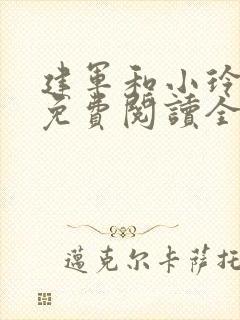 建军和小玲
免費閱讀全
邁克尔卡萨托